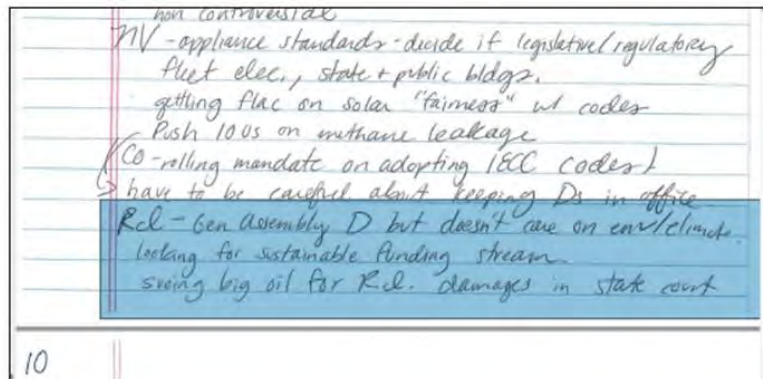 non controversial
NV - appliance standards - decide if legislative/regulatory
fleet elec., state + public bldgs.
getting flac on solar "fairness" w/ codes
Push IOUs on methane leakage
(CO - rolling mandate on adopting IECC codes)
> have to be careful about keeping Ds in office
R.I. - Gen Assembly D but doesn't care on env/climate.
looking for sustainable funding stream
sueing big oil for R.I. damages in state court
10